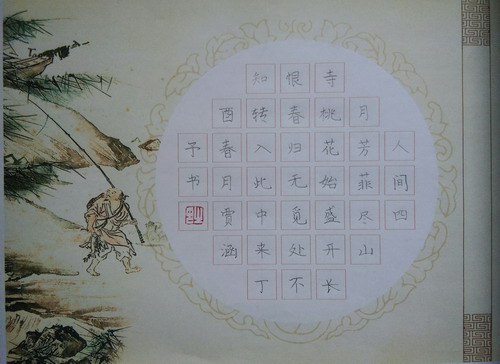 人间四
月芳菲尽山
寺桃花始盛开长
恨春归无觅处不
知转入此中来丁
酉春月贾涵
予书